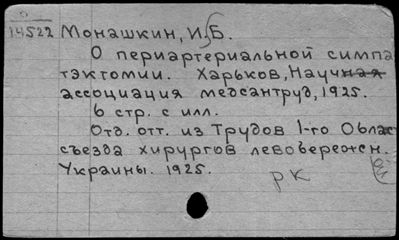 14522 Монашкин, И.Б.
О периартериальной симпа
тэктомии. Харьков, Научная
ассоциация медсантруд, 1925.
6 стр. с илл.
Отд. отт. из Трудов 1-го Облас
съезда хирургов левобережн.
Украины. 1925.
рк